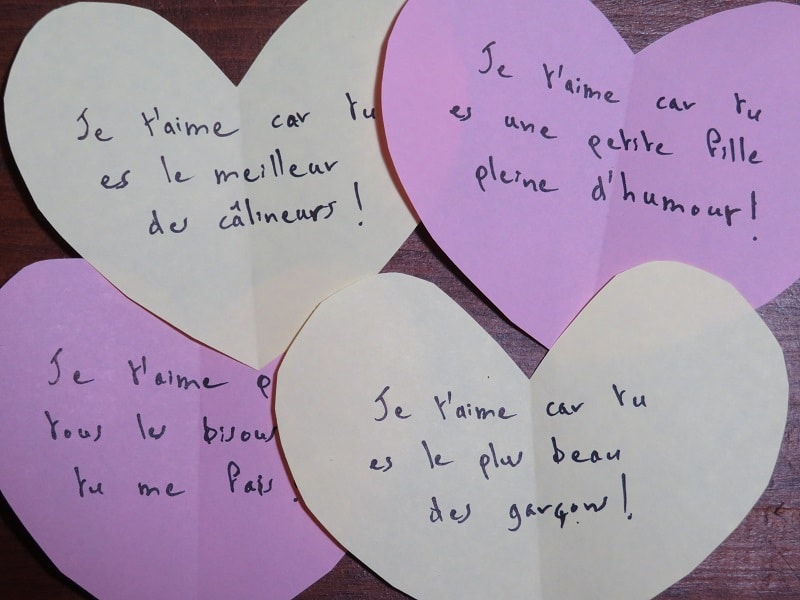 Je t'aime car tu
es le meilleur
des câlineurs !
Je t'aime car tu
es une petite fille
pleine d'humour !
Je t'aime
tous les bisous
tu me fais !
Je t'aime car tu
es le plus beau
des garçons !